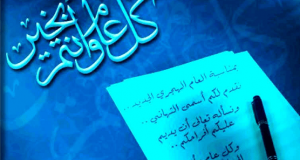 كل عام وأنتم بخير
بمناسبة العام الهجري الجديد..
نقدم لكم أسمى التهاني..
ونسأله تعالى أن يديم
عليكم أفراحكم..
وكل عام